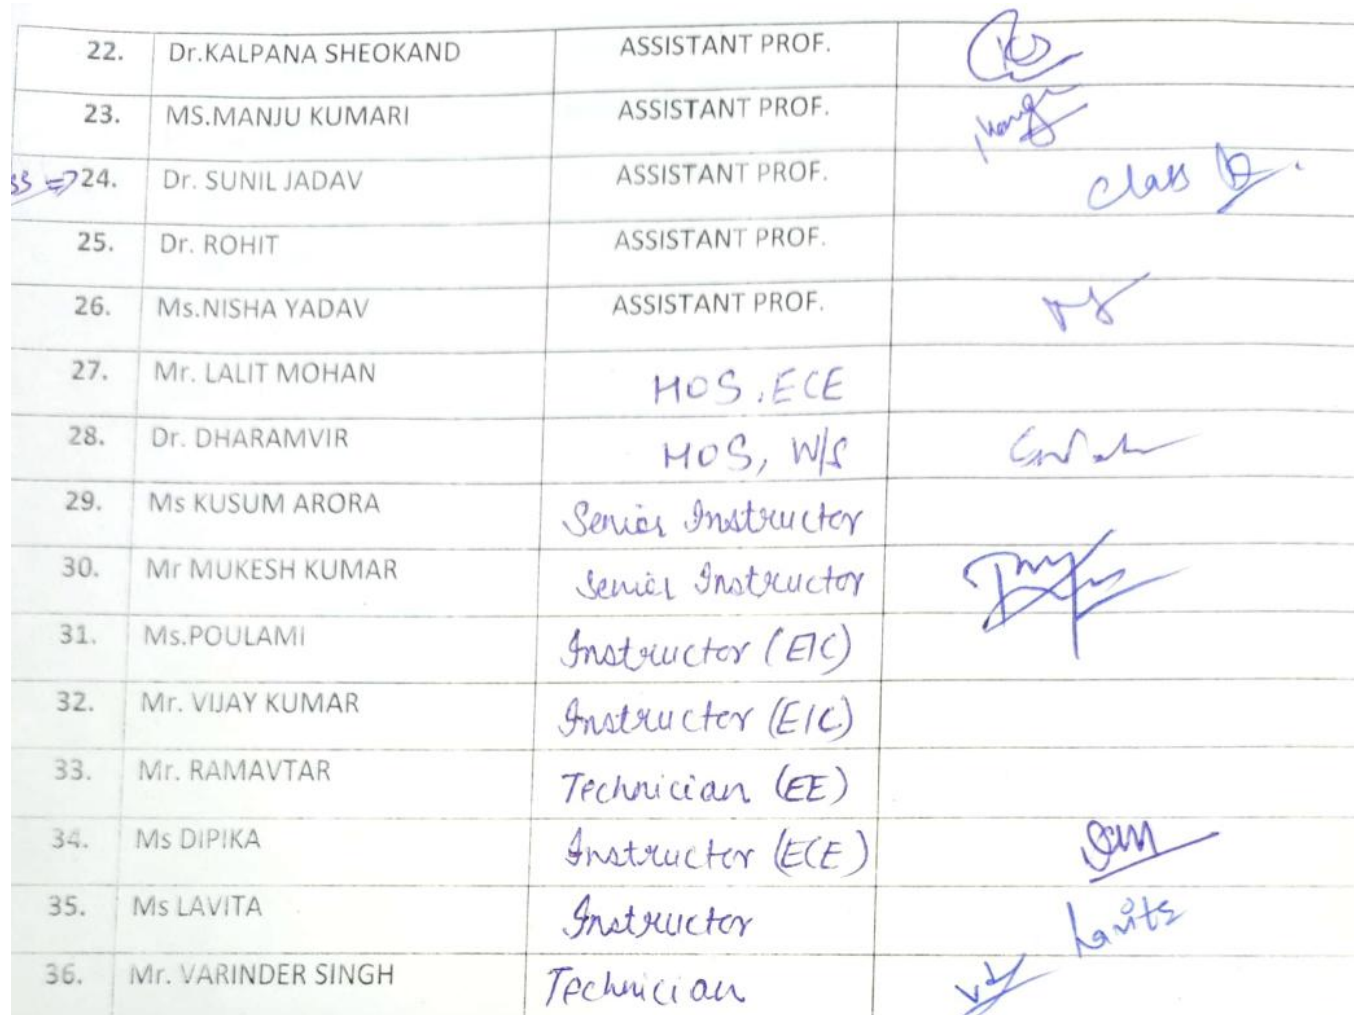 22. Dr.KALPANA SHEOKAND ASSISTANT PROF.
23. MS.MANJU KUMARI ASSISTANT PROF.
24. Dr. SUNIL JADAV ASSISTANT PROF. Class
25. Dr. ROHIT ASSISTANT PROF.
26. Ms.NISHA YADAV ASSISTANT PROF.
27. Mr. LALIT MOHAN HOS, ECE
28. Dr. DHARAMVIR HOS, W/S
29. Ms KUSUM ARORA Senior Instructor
30. Mr MUKESH KUMAR Senior Instructor
31. Ms.POULAMI Instructor (EIC)
32. Mr. VIJAY KUMAR Instructor (EIC)
33. Mr. RAMAVTAR Technician (EE)
34. Ms DIPIKA Instructor (ECE)
35. Ms LAVITA Instructor Lavita
36. Mr. VARINDER SINGH Technician